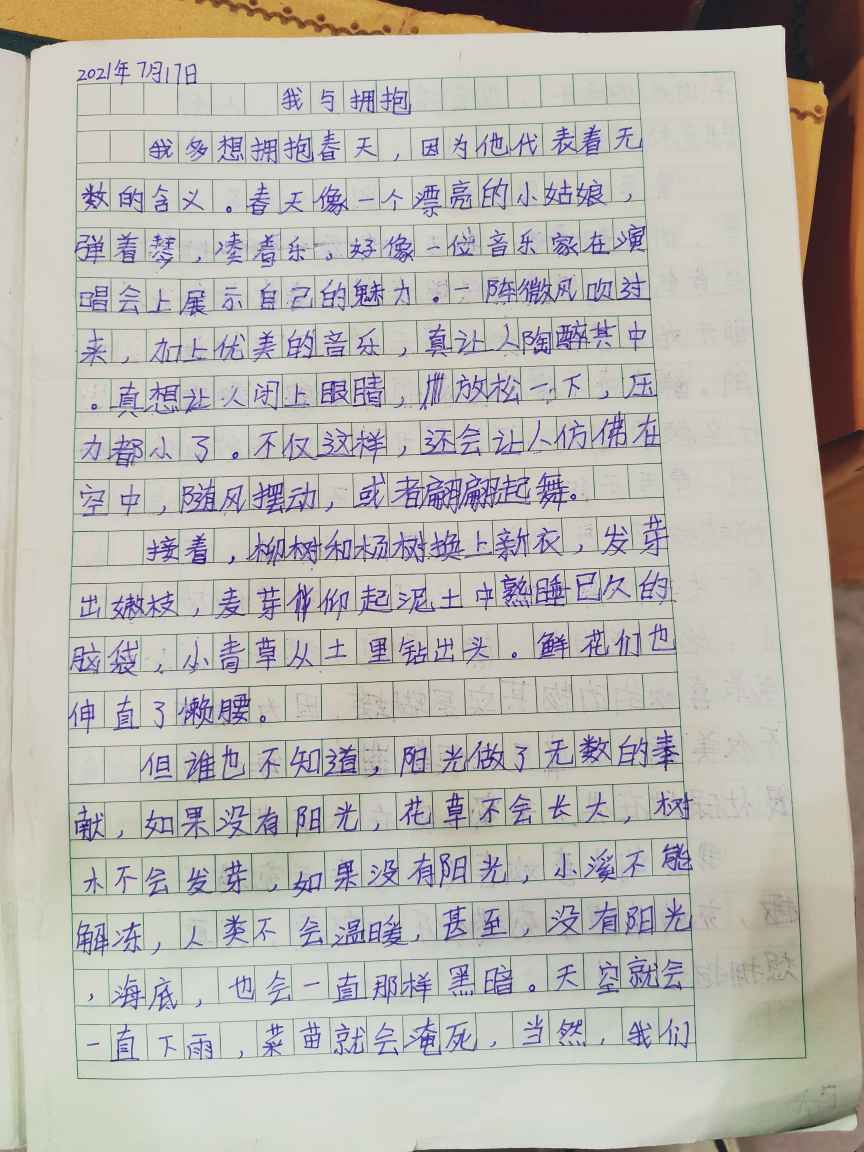 2021年7月17日
我与拥抱
我多想拥抱春天，因为他代表着无
数的含义。春天像一个漂亮的小姑娘，
弹着琴，凑着乐。好像一位音乐家在演
唱会上展示自己的魅力。一阵微风吹过
来，加上优美的音乐，真让人陶醉其中
。真想让人闭上眼睛，放松一下，压
力都小了。不仅这样，还会让人仿佛在
空中，随风摆动，或者翩翩起舞。
接着，柳树和杨树换上新衣，发芽
出嫩枝，麦芽仰起泥土中熟睡已久的
脑袋，小青草从土里钻出头。鲜花们也
伸直了懒腰。
但谁也不知道，阳光做了无数的奉
献，如果没有阳光，花草不会长大，树
木不会发芽，如果没有阳光，小溪不能
解冻，人类不会温暖，甚至，没有阳光
，海底，也会一直那样黑暗。天空就会
一直下雨，菜苗就会淹死，当然，我们